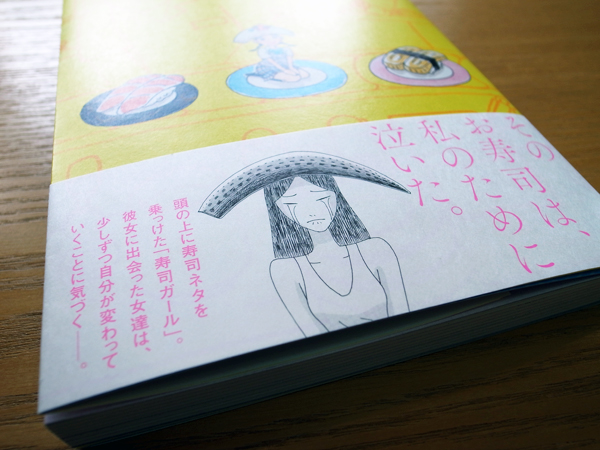 その
お寿司は、
私のために
泣いた。
頭の上に寿司ネタを
乗っけた「寿司ガール」。
彼女に出会った女達は、
少しずつ自分が変わって
いくことに気づく――。